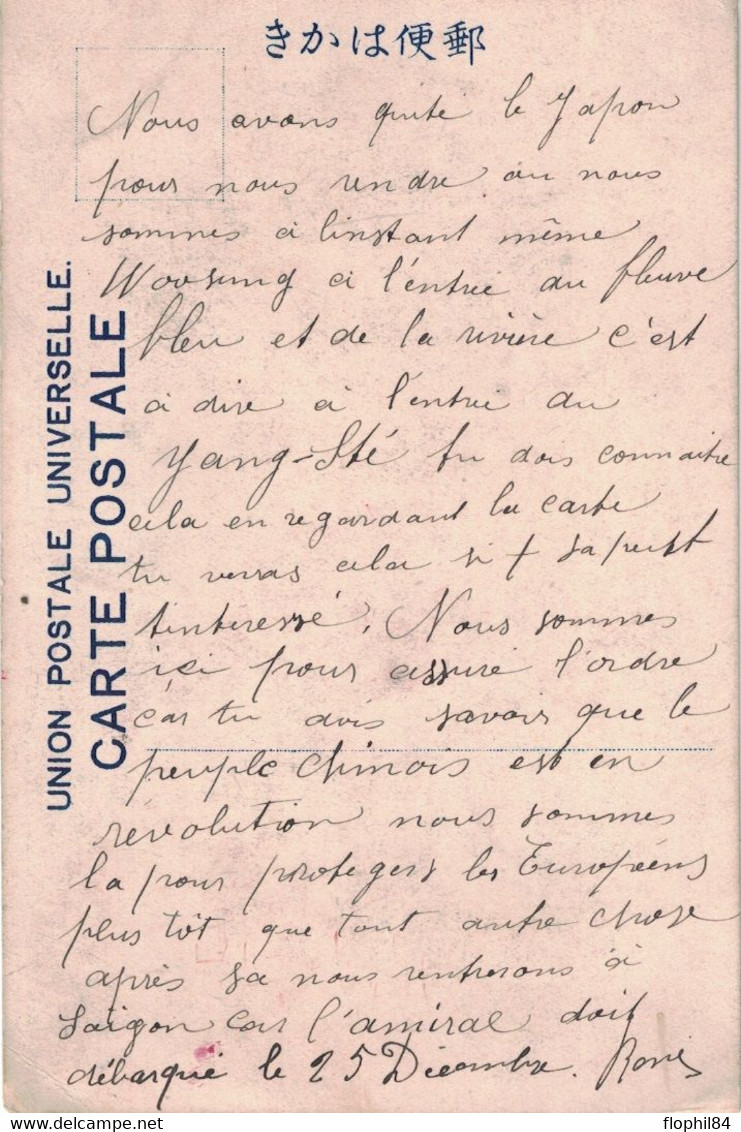 きかは便郵
UNION POSTALE UNIVERSELLE.
CARTE POSTALE
Nous avons quité le Japon
pour nous rendre ou nous
sommes à linstant même
Woosung à l'entrée du fleuve
bleu et de la rivière c'est
à dire à l'entrée du
Yang-Sté tu dois connaitre
cela en regardant la carte
tu verras cela si sa peust
tinteressé. Nous sommes
ici pour assuré l'ordre
car tu dois savoir que le
peuple chinois est en
révolution nous sommes
la pour protegers les Européens
plus tôt que tout autre chose
après sa nous rentrerons à
Saigon car l'amiral doit
débarqué le 25 Décembre.
flophil84